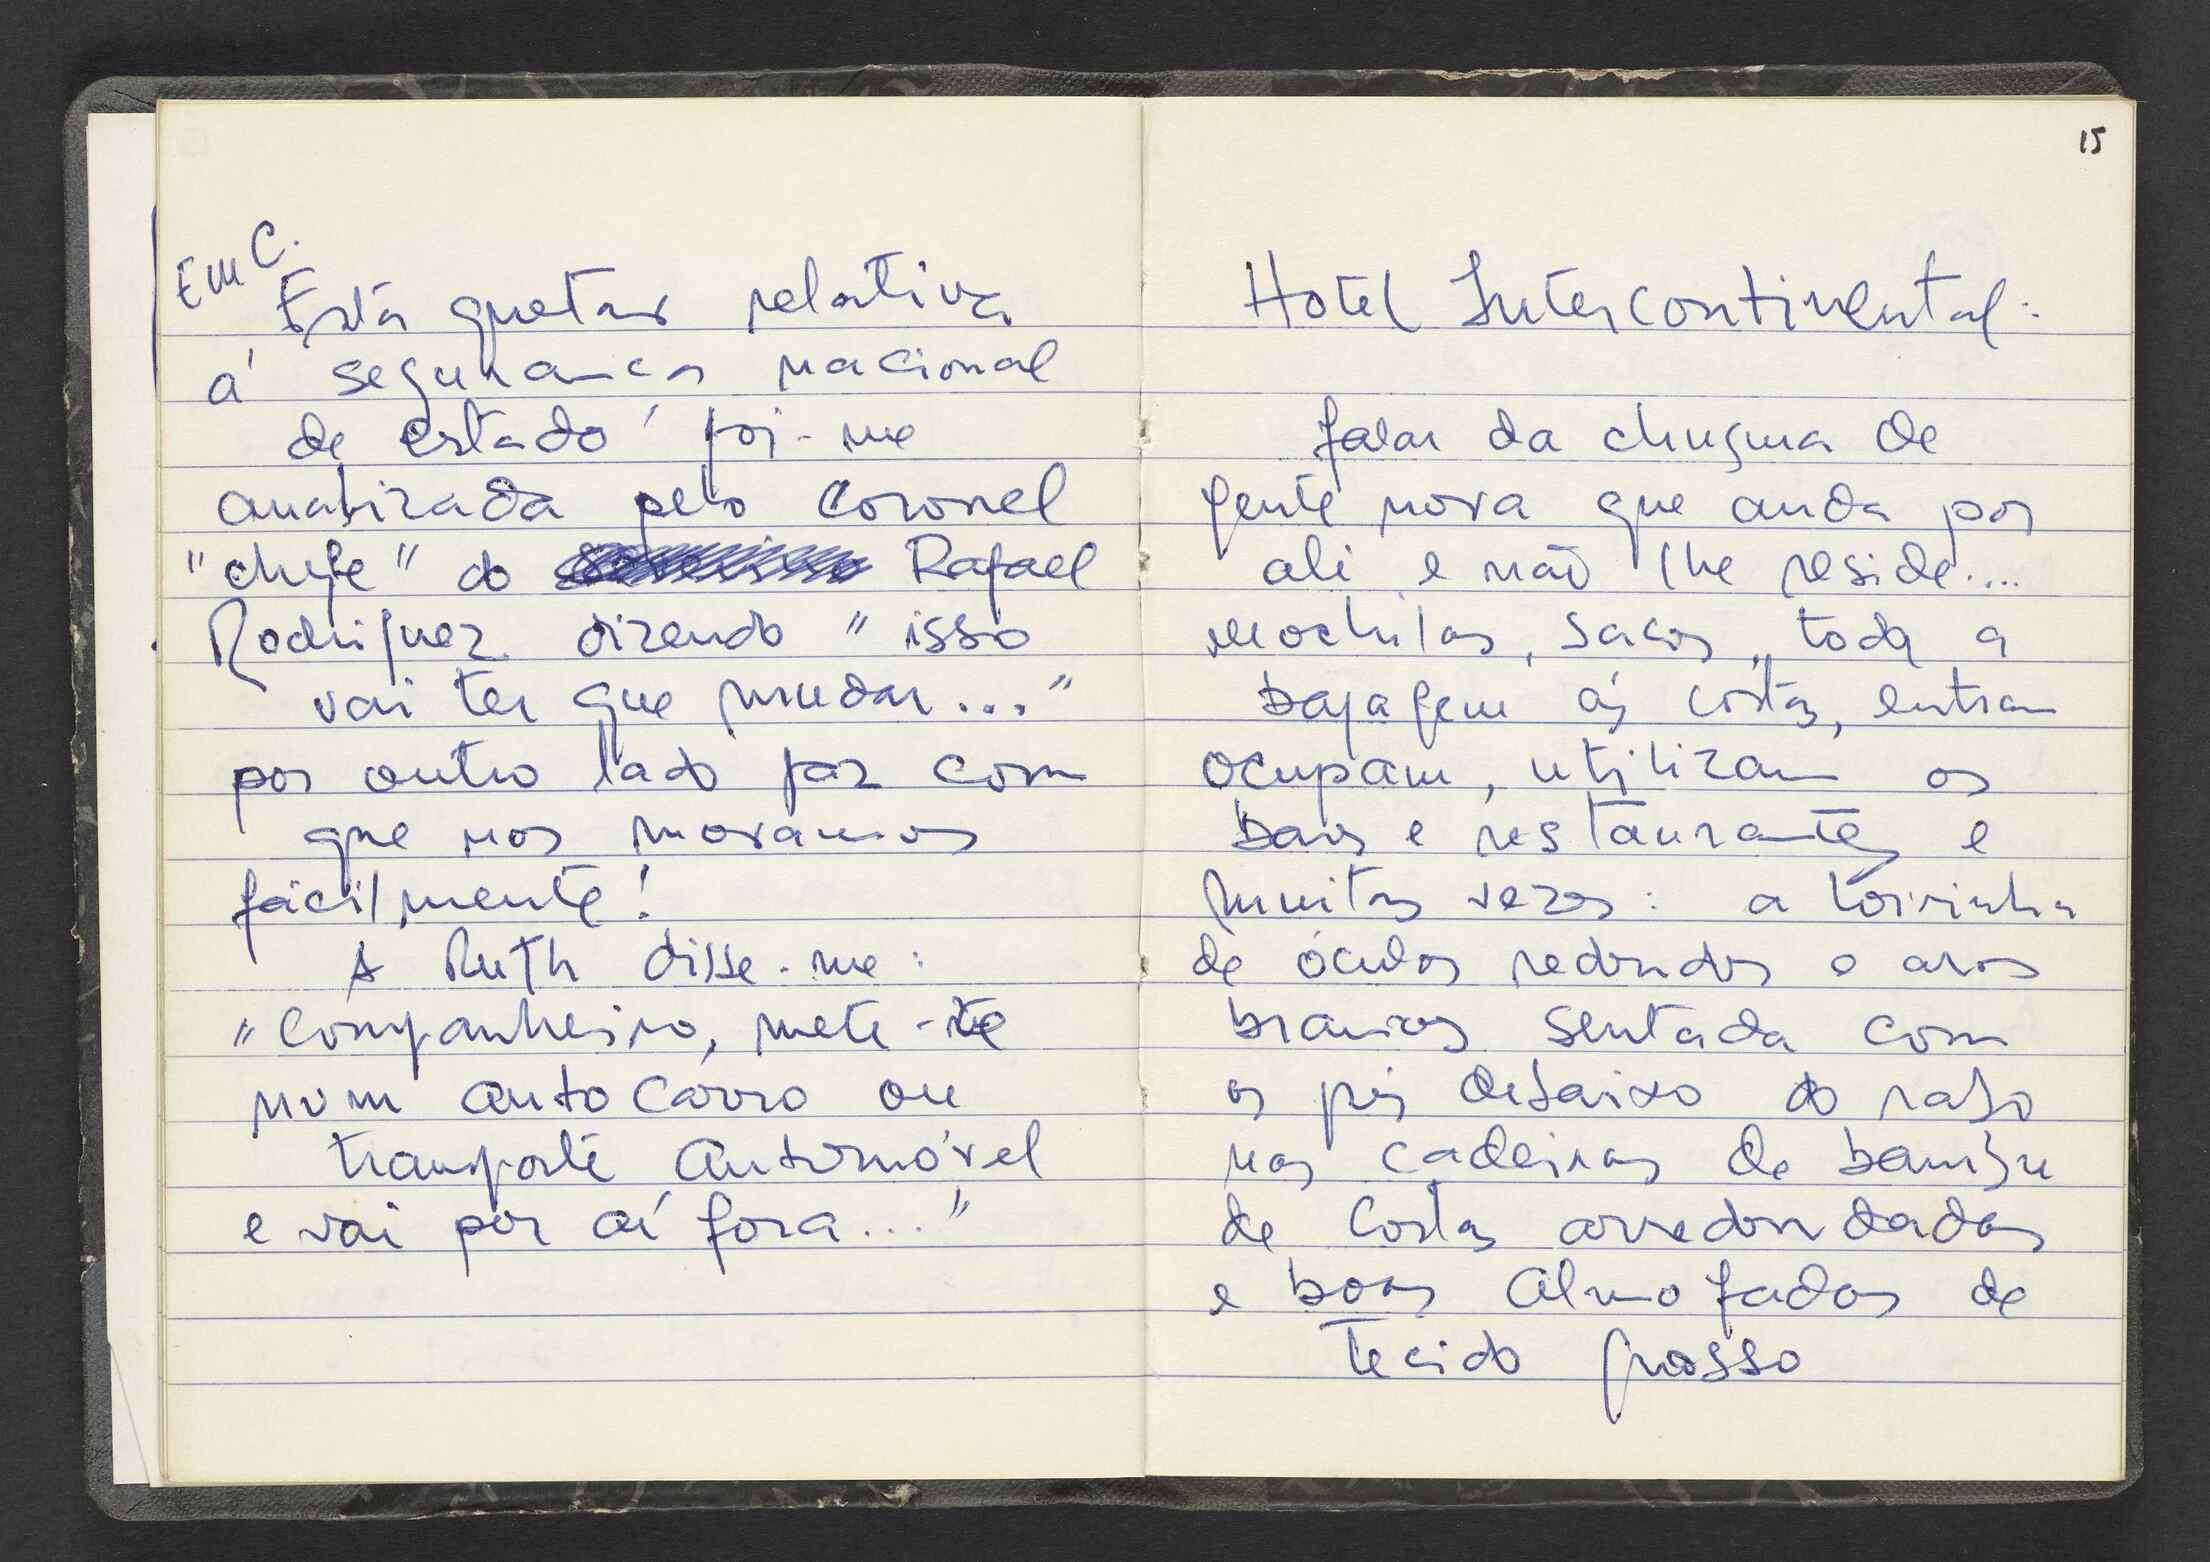 Em C.
Esta questão relativa
á segurança nacional
de estado foi-me
analizada pelo Coronel
"chefe" do Rafael
Rodriguez dizendo "isso
vai ter que mudar..."
por outro lado faz com
que nos movamos
fácilmente!
A Ruth disse-me:
"Companheiro, mete-te
num autocarro ou
transporte automóvel
e vai por aí fora..."
15
Hotel Intercontinental:
falar da chusma de
gente nova que anda por
ali e não lhe reside....
mochilas, sacos, toda a
bagagem ás costas, entram
ocupam, utilizam os
bares e restaurantes e
muitas vezes: a loirinha
de óculos redondos e aros
brancos sentada com
os pés debaixo do rabo
nas cadeiras de bambu
de costas arredondadas
e boas almofadas de
tecido grosso